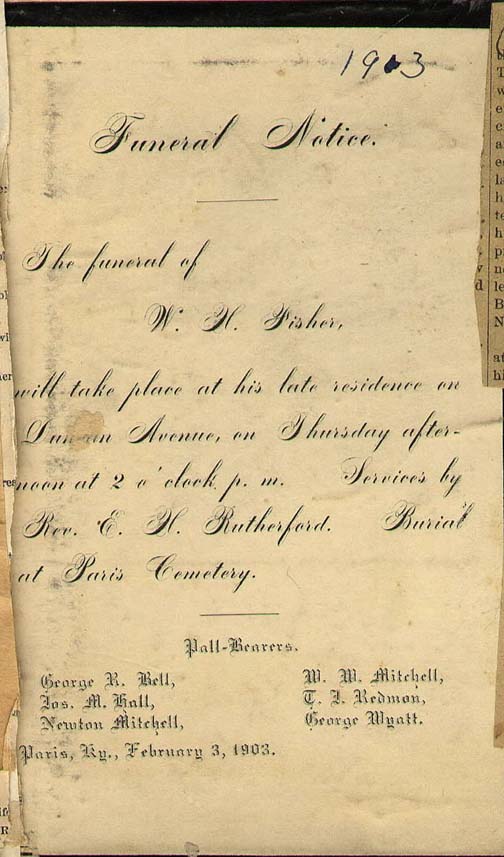 1903
Funeral Notice.
The funeral of
W. H. Fisher,
will take place at his late residence on
Duncan Avenue, on Thursday after-
noon at 2 o'clock p. m. Services by
Rev. E. H. Rutherford. Burial
at Paris Cemetery.
Pall-Bearers.
George R. Bell,
Jos. M. Hall,
Newton Mitchell,
W. W. Mitchell,
T. I. Redmon,
George Wyatt.
Paris, Ky., February 3, 1903.